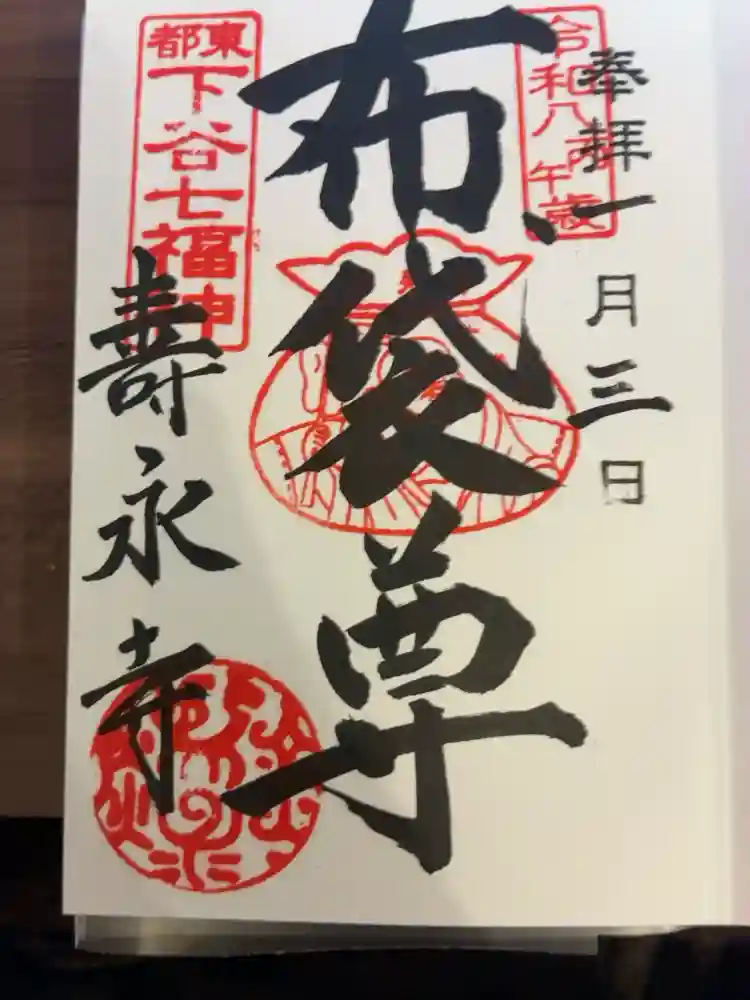 奉拝
一月三日
令和八丙午歳
布袋尊
東都
下谷七福神
壽永寺